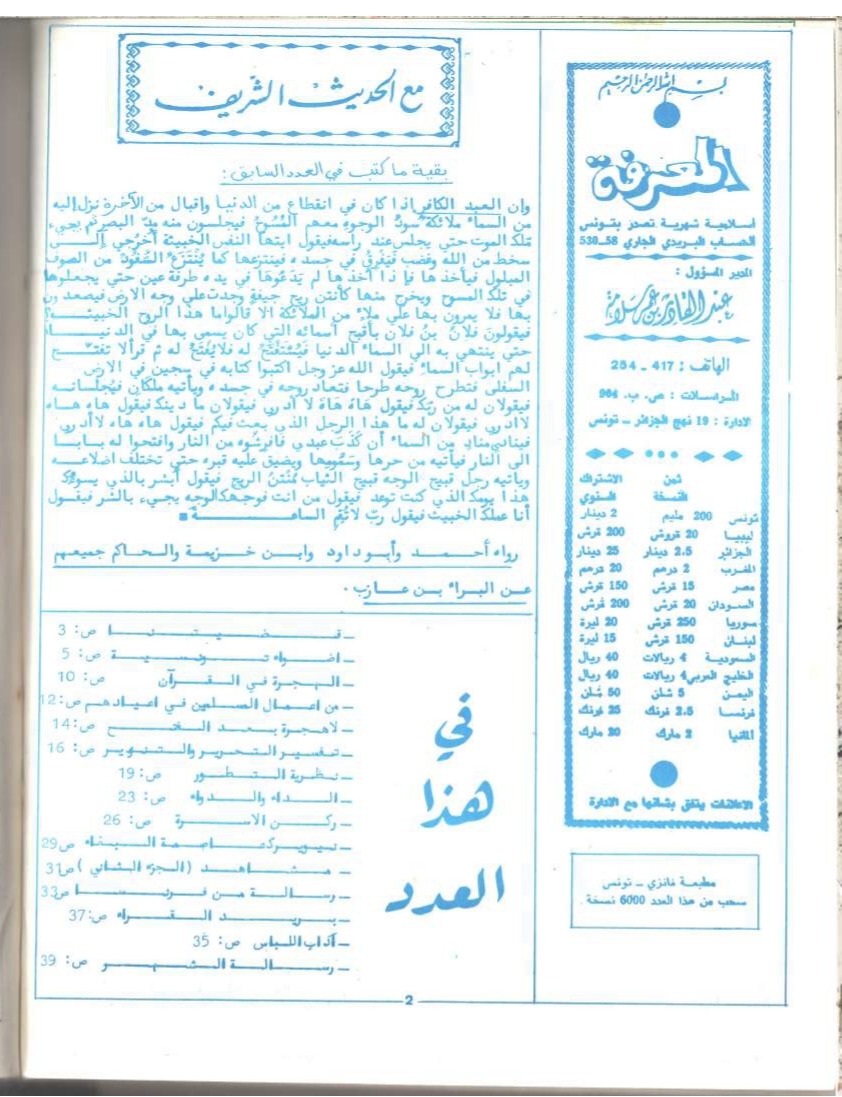 بسم الله الرحمن الرحيم
المعرفة
اسلامية شهرية تصدر بتونس
الحساب البريدي الجاري 58_530
المدير المسؤول :
عبد القادر بن سلامة
الهاتف : 417 - 254
المراسلات : ص. ب. 964
الادارة : 19 نهج الجزائر - تونس
ثمن النسخة
الاشتراك السنوي
تونس 200 مليم 2 دينار
ليبيا 20 قروش 200 قرش
الجزائر 2.5 دينار 25 دينار
المغرب 2 درهم 20 درهم
مصر 15 قرش 150 قرش
السودان 20 قرش 200 قرش
سوريا 250 قرش 20 ليرة
لبنان 150 قرش 15 ليرة
السعودية 4 ريالات 40 ريال
الخليج العربي 4 ريالات 40 ريال
اليمن 5 شلن 50 شلن
فرنسا 2.5 فرنك 25 فرنك
المانيا 2 مارك 20 مارك
الاعلانات يتفق بشانها مع الادارة
مطبعة فانزي - تونس
سحب من هذا العدد 6000 نسخة .
مع الحديث الشريف
بقية ما كتب في العدد السابق :
وان العبد الكافر اذا كان في انقطاع من الدنيا واقبال من الآخرة نزل إليه
من السماء ملائكة سودُ الوجوه معهم المُسُوحُ فيجلسون منه مدّ البصر ثم يجيء
ملك الموت حتي يجلس عند راسه فيقول ايتها النفس الخبيثة أخرُجي إلى
سخط من الله وغضب فيَفْرقُ في جسده فينتزعها كما يُنْتَزعُ السَّفُّودُ من الصوف
المبلول فيأخذها فإذا أخذها لم يَدَعُوهَا في يده طرفة عين حتي يجعلوها
في تلك المسوح ويخرج منها كأنتن ريح جيفةٍ وجدت علي وجه الارض فيصعدون
بها فلا يمرون بها علي ملاءٍ من الملائكة الا قالوا ما هذا الروح الخبيثة؟
فيقولون فلانُ بنُ فلان بأقبح أسمائه التي كان يسمى بها في الدنيا
حتي ينتهي به الي السماء الدنيا فَيُسْتَفْتَحُ له فلا يُفتحُ له ثم قرأ لا تفتّح
لهم ابواب السماء فيقول الله عز وجل اكتبوا كتابه في سجين في الارض
السفلي فتطرح روحه طرحا فتعاد روحه في جسده ويأتيه ملكان فيُجلسانه
فيقولان له من ربّك فيقول هَاهْ هَاهْ لا أدري فيقولان ما دينك فيقول هاه هاه
لا ادري فيقولان له ما هذا الرجل الذي بعث فيكم فيقول هاه هاه لا أدري
فينادي منادٍ من السماء أن كَذَبَ عبدي فافرشُوه من النار وافتحوا له بابا
الي النار فيأتيه من حرها وسَمُومِها ويضيق عليه قبره حتي تختلف اضلاعه
ويأتيه رجل قبيح الوجه قبيح الثياب مُنْتن الريح فيقول أبشر بالذي يسوءك
هذا يومك الذي كنت توعد فيقول من انت فوجهك الوجه يجيء بالشر فيقول
أنا عملك الخبيث فيقول ربّ لا تُقِم الساعة
رواه أحمد وأبو داود وابن خزيمة والحاكم جميعهم
عن البراء بن عازب .
في
هذا
العدد
_ قضيتنا ص: 3
_ اضواء تونسية ص: 5
_ الهجرة في القرآن ص: 10
_ من اعمال المسلمين في اعيادهم ص: 12
_ لا هجرة بعد الفتح ص: 14
_ تفسير التحرير والتنوير ص: 16
_ نظرية التطور ص: 19
_ الداء والدواء ص: 23
_ ركن الاسرة ص: 26
_ نيويورك عاصمة البغاء ص 29
_ مشاهد (الجزء الثاني) ص 31
_ رسالة من فرنسا ص 33
_ بريد القراء ص: 37
_ آداب اللباس ص: 35
_ رسالة الشهر ص: 39
2